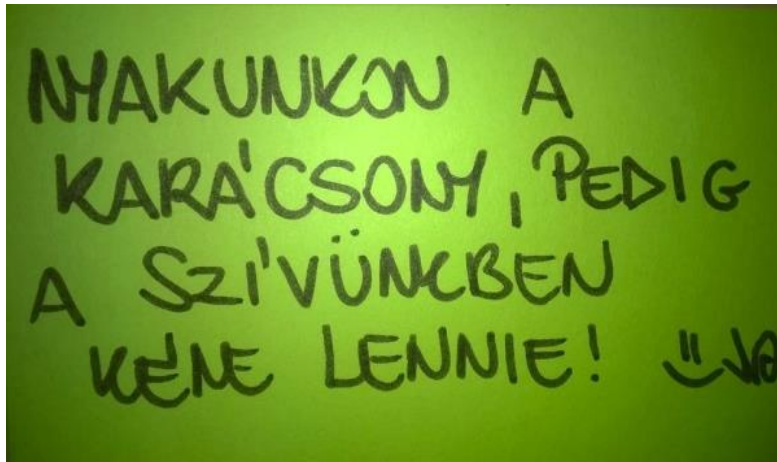 NYAKUNKON A
KARÁCSONY, PEDIG
A SZÍVÜNKBEN
KÉNE LENNIE!